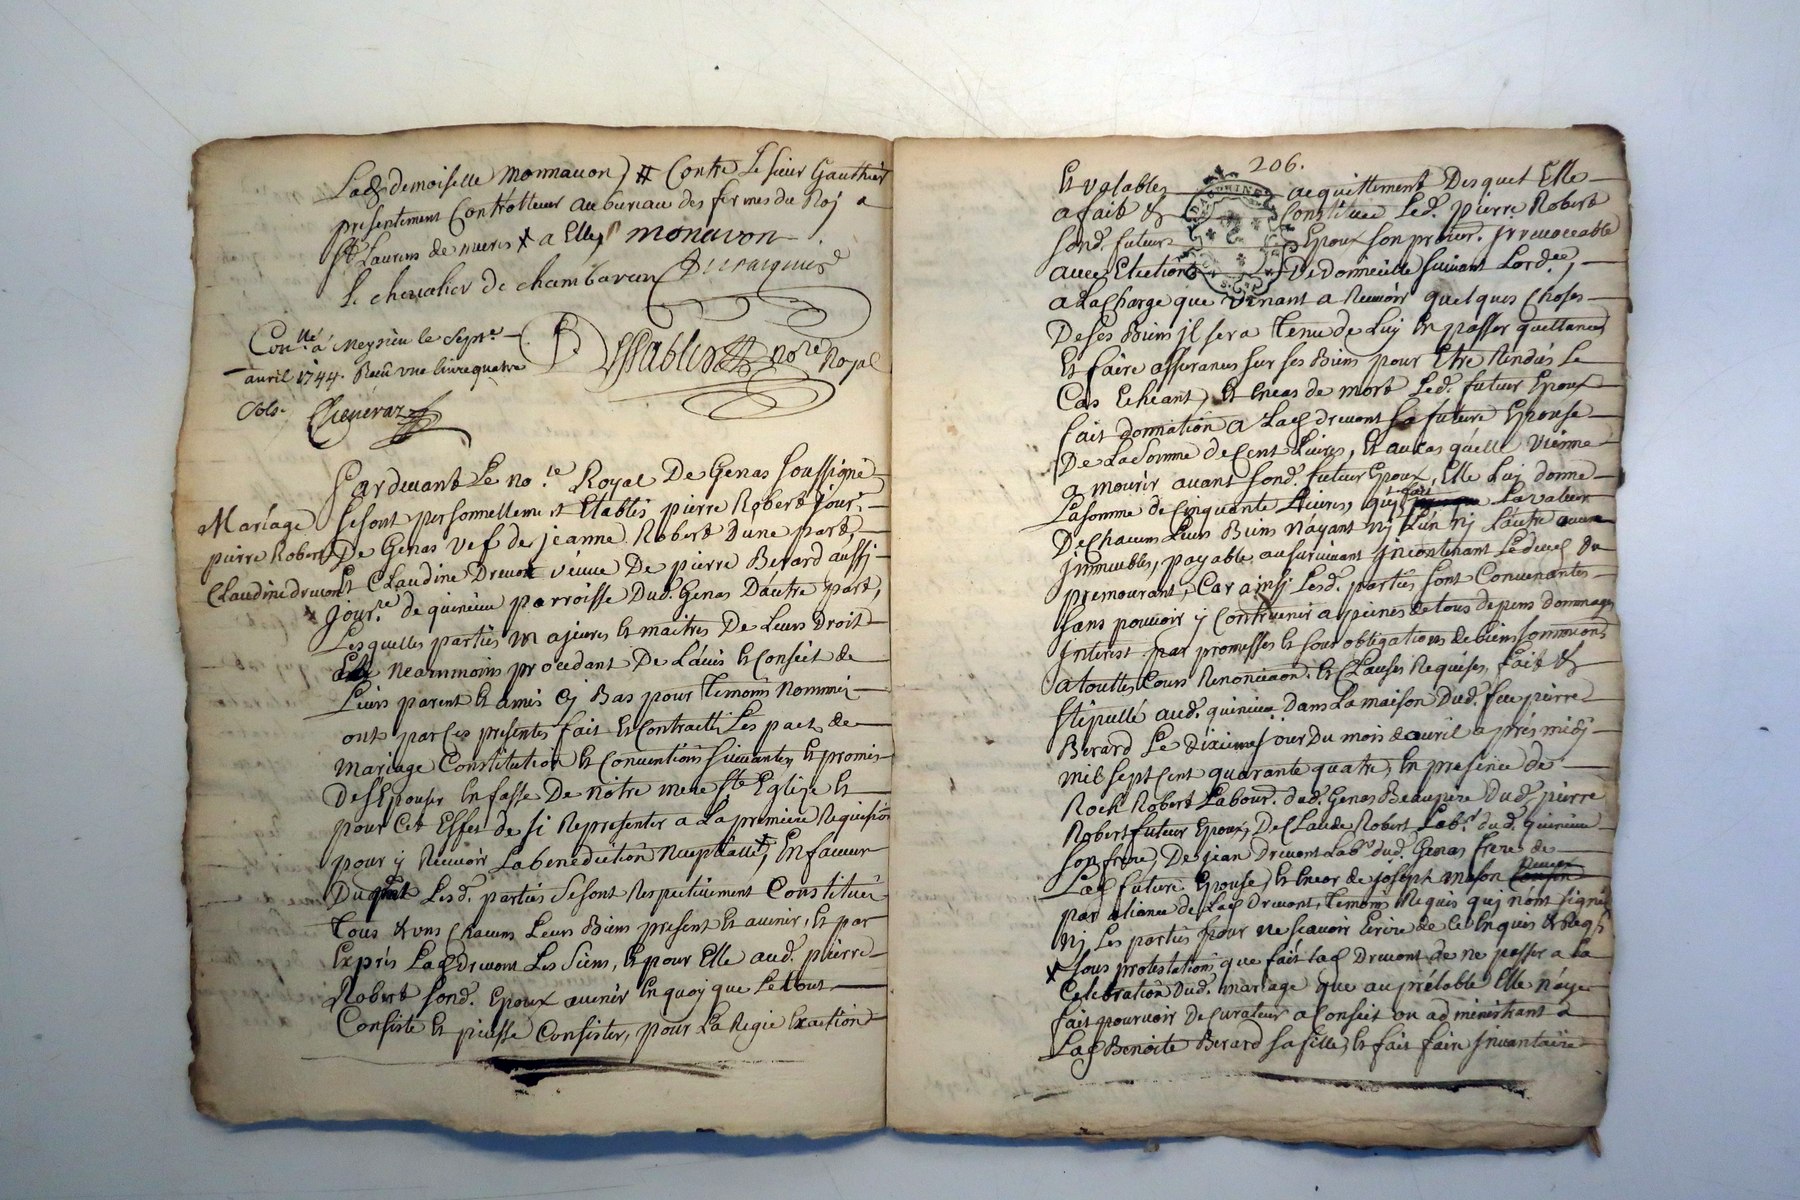 Lad. demoiselle monnavon, # Contre Le sieur Gauthier
presentement Controlleur au bureau des fermes du Roj a
St. Laurens de mures # a Elle, monavon
le chevalier de chambaran
Conllé. a Meyzieu le Sept.e
avril 1744. Reçû une livre quatre
sols.
nore Royal
206.
Pardevant Le no.re Royal De Genas soussigné
Mariage
pierre Robert
Claudine drevont
se sont personnellement Etablis pierre Robert jour.r
De Genas vef de jeanne Robert Dune part,
Et Claudine Drevont veuve De pierre Berard aussj
jour.re de quinieu parroisse Dud. Genas Dautre part,
Lesquelles partiës majeures Et maîtres De Leurs Droits
neammoins procedant De L'avis Et Conseit de
Leurs parent Et amis cj Bas pour temoins nommés
ont par Ces presentes fait Et Contracté Les pact de
mariage Constitution Et Conventions suivantes, Et promis
De s'Epouser En fasse De nôtre mere Ste Eglize Et
pour Cet Effet de si Representer a La premiere Requisition
pour ÿ Recevoir La benediction Nuptialle, En faveur
Duquel Lesd. partiës se sont Respectivement Constituës
Tous & uns Chacuns Leurs Biens present Et avenir, Et par
Exprés Lad. Drevont Les siens, Et pour Elle aud. pierre
Robert sond. Epoux avenir En quoy que Le tout
Consiste Et puisse Consister, pour La Regie Exaction
Et valables acquittement Desquel Elle
a fait & Constitué Led. pierre Robert
sond. futur Epoux son procur. Irrevocable
avec Election De Domicille suivant Lord.ce,
a La Charge que venant a Recevoir quelques Choses
De ses Biens jl sera tenu de Luy En passer quittances
Et faire assurances sur ses Biens pour Etre Rendues Le
Cas Echeant, Et En cas de mort Led. futur Epoux
fait donnation a Lad. drevont sa future Epouse
De La somme de Cent Livres, Et au cas qu'elle vienne
a mourir avant sond. futur Epoux, Elle Luy donne
La somme de Cinquante Livres, quj fait La valeur
De Chacuns Leurs Biens n'ayant nj L'un nj L'autre aucun
jmmeubles, payable au survivant jncontenant Le deces du
premourant, Car ainsj Lesd. partiës sont Convenantes
sans pouvoir ÿ Contrevenir a peines de tous depens dommages
jnterest par promesses Et sous obligations de biens sommions
a touttes Cours Renonciaon. Et Clauses Requises, fait &
stipullé aud. quinieu Dans La maison Dud. feu pierre
Berard Le dixieme jour Du mois d'avril aprés midj
mil sept Cent quarante quatre, En presence de
Roch Robert Labour. dud. Genas Beaupere Dud. pierre
Robert futur Epoux, De Claude Robert Lab.r dud. quinieu
son frere, De jean Drevont Lab.r dud. Genas frere de
Lad. future Epouse, Et Encor de joseph
par aliance de Lad. Drevont, temoins Requis quj n'ont signé
nj Les partiës pour ne sçavoir Ecrire de Ce Enquis & Req.s
# sous protestations que fait Lad. Drevont de ne passer a La
Celebration Dud. mariage que au prélable Elle n'aye
fait pourvoir De Curateur a Conseit ou administrant a
Lad. Benoite Berard sa fille, Et fait faire jnventaire